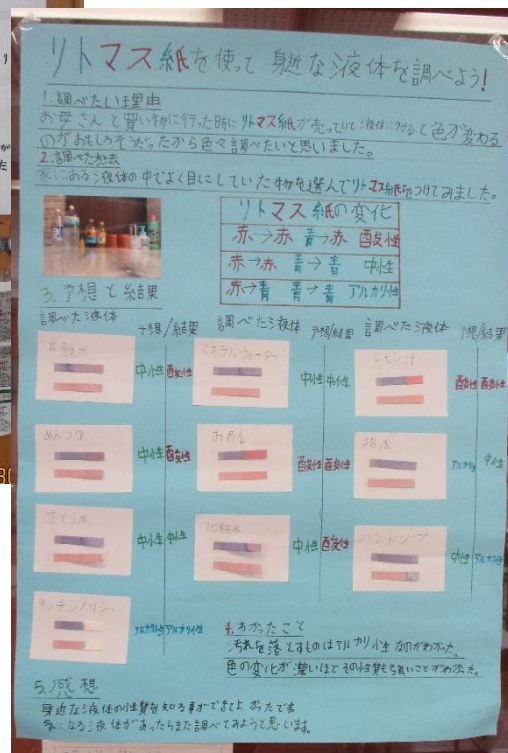 リトマス紙を使って身近な液体を調べよう!
1.調べたい理由
お母さんと買い物に行った時にリトマス紙が売っていて液体につけると色が変わる
のがおもしろそうだったから色々調べたいと思いました。
2.調べた方法
家にある液体の中でよく目にしていた物を選んでリトマス紙をつけてみました。
リトマス紙の変化
赤→赤 青→赤 酸性
赤→赤 青→青 中性
赤→青 青→青 アルカリ性
3.予想と結果
調べた液体 予想/結果 調べた液体 予想/結果 調べた液体 予想/結果
炭酸水 中性 酸性 ミネラルウォーター 中性 中性 レモン汁 酸性 酸性
めんつゆ 中性 酸性 お酢 酸性 酸性 アルカリ 中性
さとう水 中性 中性 化粧水 中性 酸性 ハンドソープ 中性 アルカリ性
キッチンハイター アルカリ性 アルカリ性
4.わかったこと
汚れを落とすものはアルカリ性なのがわかった。
色の変化が濃いほどその性質も強いことがわかった。
5.感想
身近な液体の性質を知る事ができてよかったです
気になる液体があったらまた調べてみようと思います。